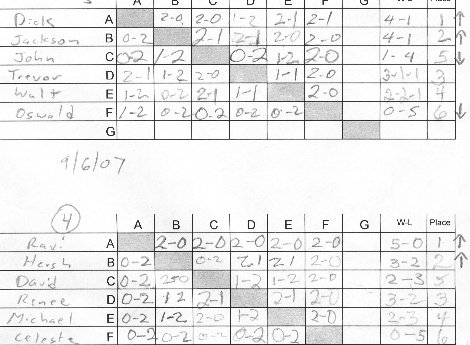 A B C D E F G W-L Place
Dick A 2-0 2-0 1-2 2-1 2-1 4-1 1 ↑
Jackson B 0-2 2-1 2-1 2-0 2-0 4-1 2 ↑
John C 0-2 1-2 0-2 1-2 2-0 1-4 5 ↓
Trevor D 2-1 1-2 2-0 1-1 2-0 3-1-1 3
Walt E 1-2 0-2 2-1 1-1 2-0 2-2-1 4
Oswald F 1-2 0-2 0-2 0-2 0-2 0-5 6 ↓
G
9/6/07
4
A B C D E F G W-L Place
Ravi A 2-0 2-0 2-0 2-0 2-0 5-0 1 ↑
Hersh B 0-2 0-2 2-1 2-1 2-0 3-2 2 ↑
David C 0-2 1-2 1-2 2-0 2-3 5
Renee D 0-2 1-2 2-1 2-1 2-0 3-2 3
Michael E 0-2 1-2 2-0 1-2 2-0 2-3 4
Celeste F 0-2 0-2 0-2 0-2 0-2 0-5 6